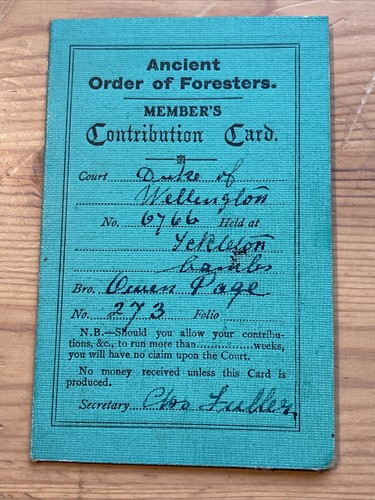 Ancient
Order of Foresters.
MEMBER'S
Contribution Card.
Court Duke of
Wellington
No. 6766 Held at
Ickleton
Cambs
Bro. Owen Page
No. 273 Folio
N.B.—Should you allow your contribu-
tions, &c., to run more than weeks,
you will have no claim upon the Court.
No money received unless this Card is
produced.
Secretary Chas Fuller